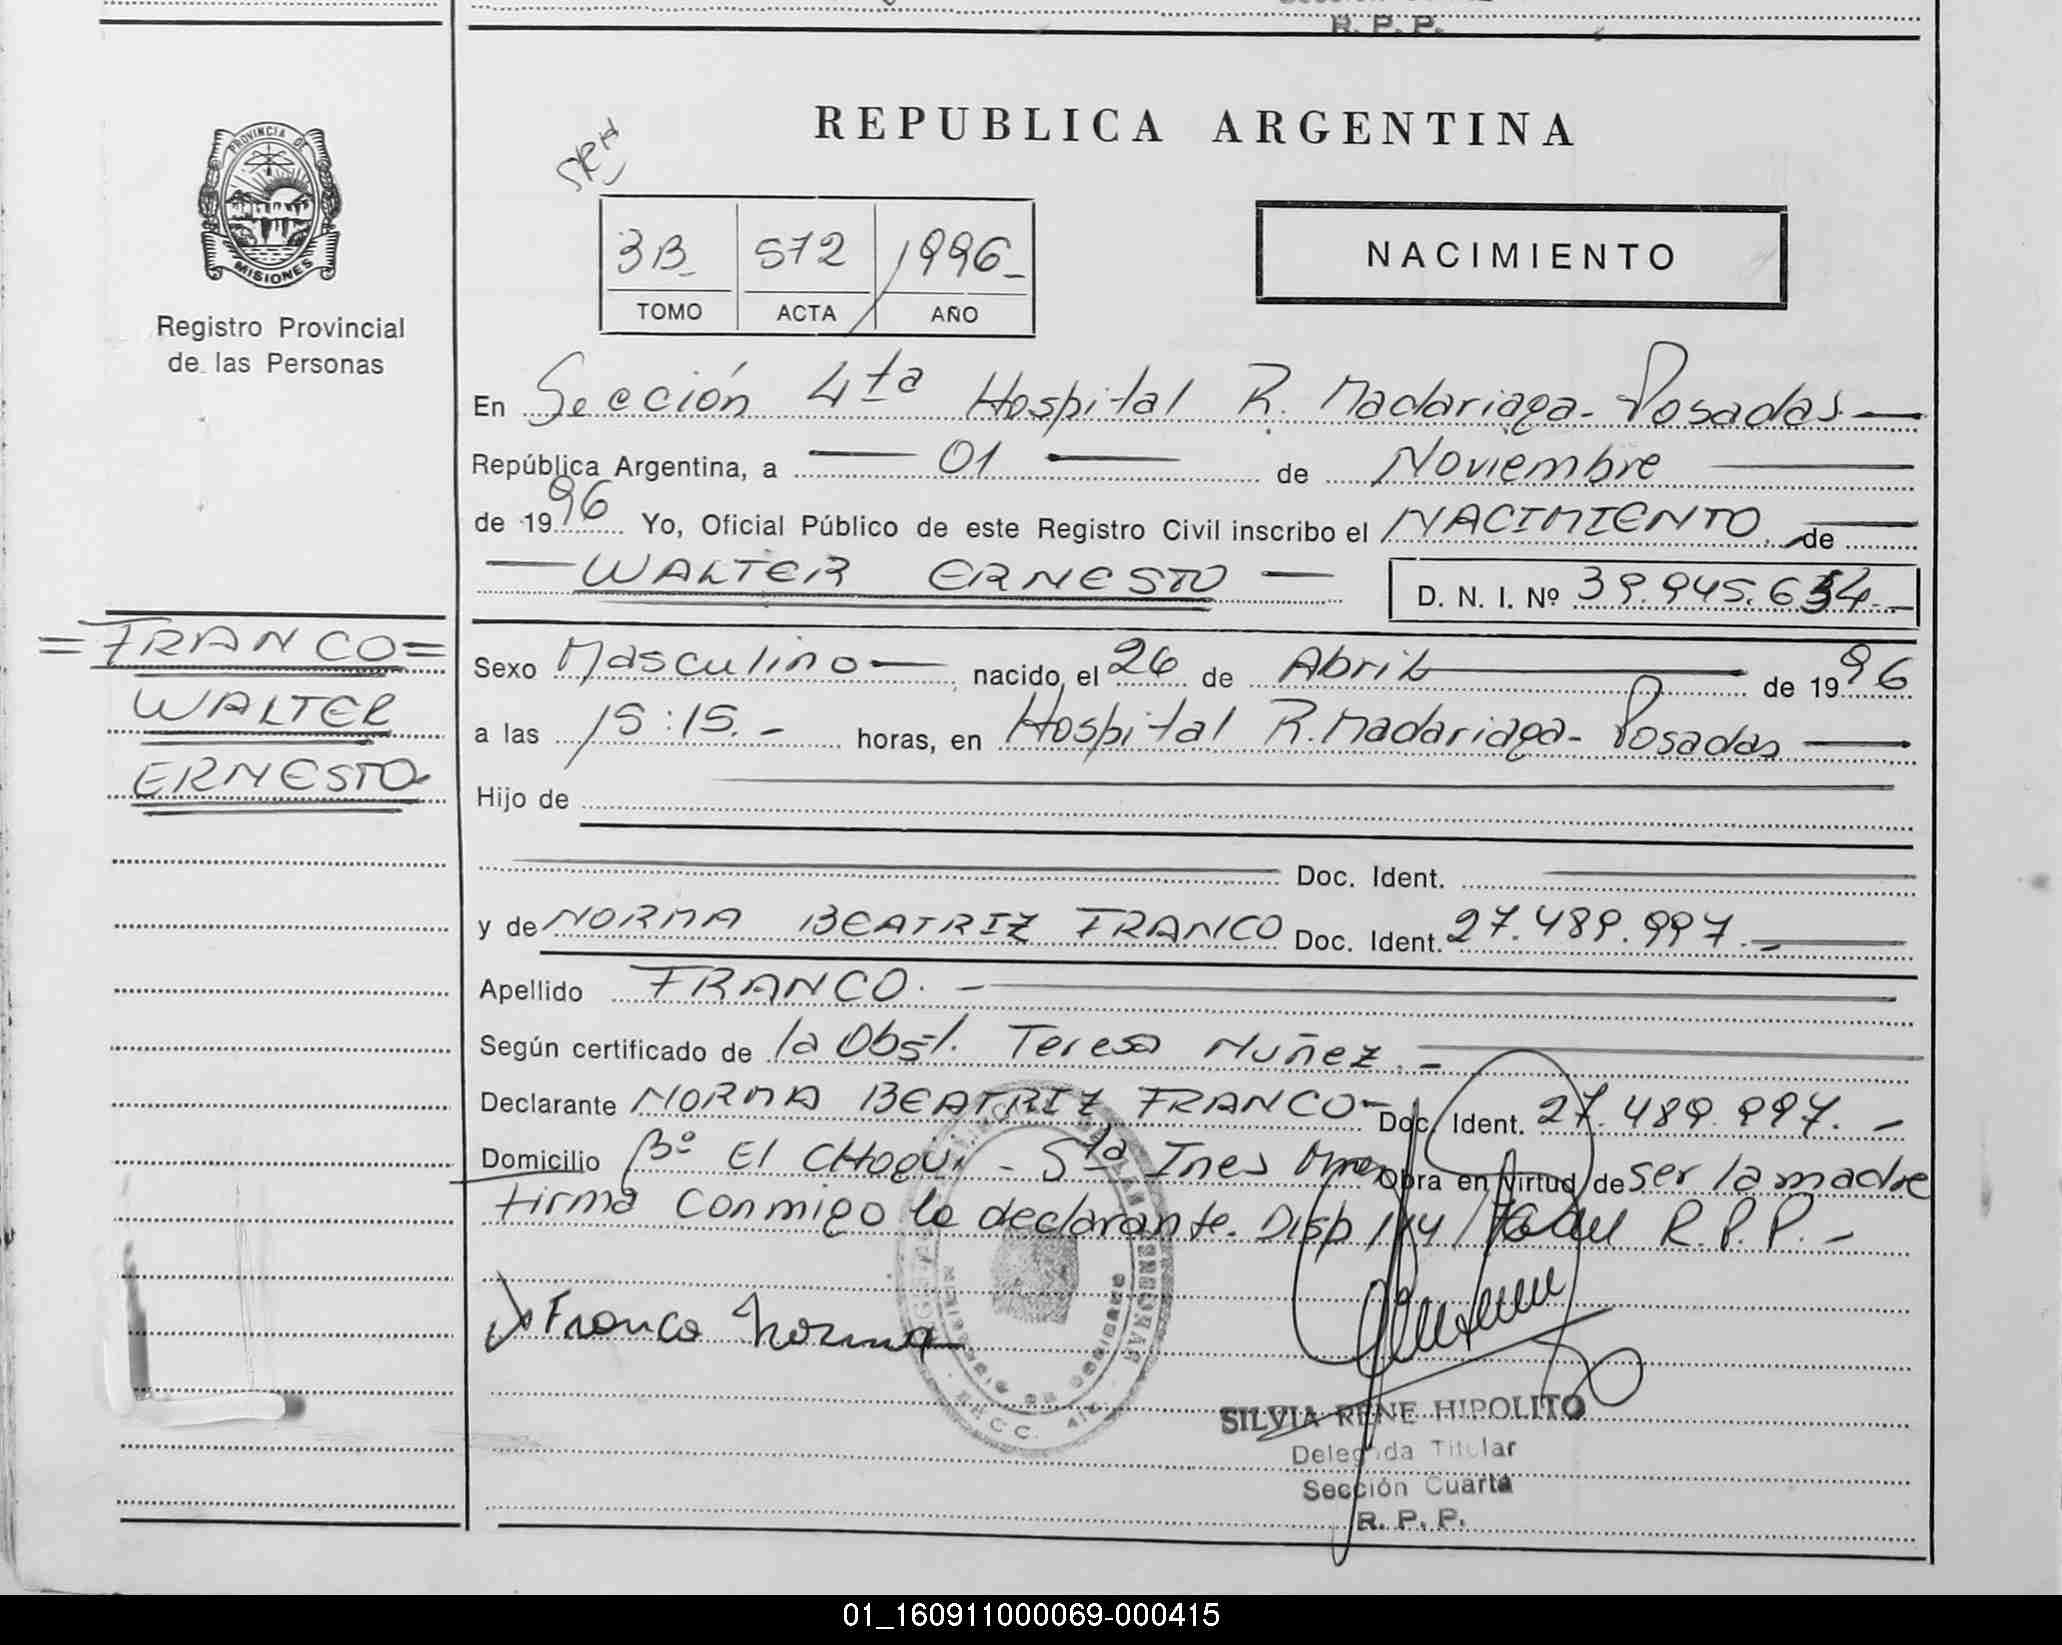 R. P. P.
PROVINCIA DE
MISIONES
Registro Provincial
de las Personas
REPUBLICA ARGENTINA
SRH
3B 572 1996
TOMO ACTA AÑO
NACIMIENTO
En Sección 4ta Hospital R. Madariaga - Posadas
República Argentina, a 01 de Noviembre
de 1996 Yo, Oficial Público de este Registro Civil inscribo el NACIMIENTO. de
WALTER ERNESTO D. N. I. Nº 39.945.634
= FRANCO =
WALTER
ERNESTO
Sexo Masculino nacido el 26 de Abril de 1996
a las 15:15.- horas, en Hospital R. Madariaga - Posadas
Hijo de
Doc. Ident.
y de NORMA BEATRIZ FRANCO Doc. Ident. 27.489.997.-
Apellido FRANCO.-
Según certificado de la Obst. Teresa Nuñez.-
Declarante NORMA BEATRIZ FRANCO - Doc. Ident. 27.489.997.-
Domicilio Bº El CHaqui - Sta Ines Obra en virtud de ser la madre
firma conmigo la declarante. Disp del R.P.P.-
Franco Norma
SILVIA RENE HIPOLITO
Delegada Titular
Sección Cuarta
R. P. P.
01_160911000069-000415